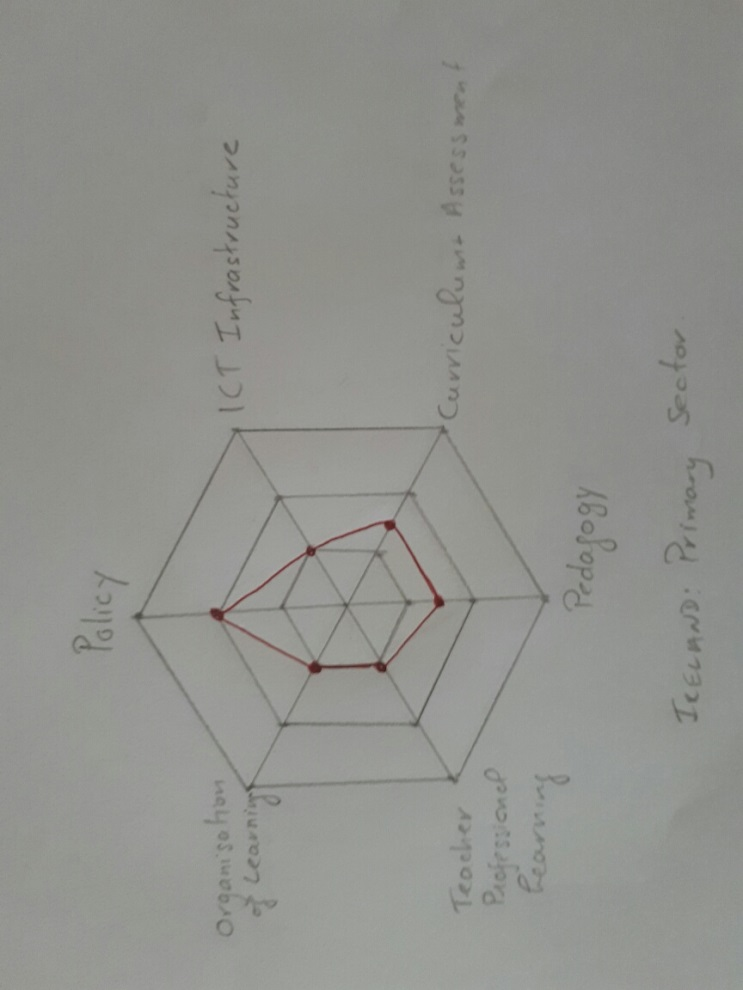 Policy
ICT Infrastructure
Curriculum + Assessment
Pedagogy
Teacher
Professional
Learning
Organisation
of Learning
IRELAND: Primary Sector.